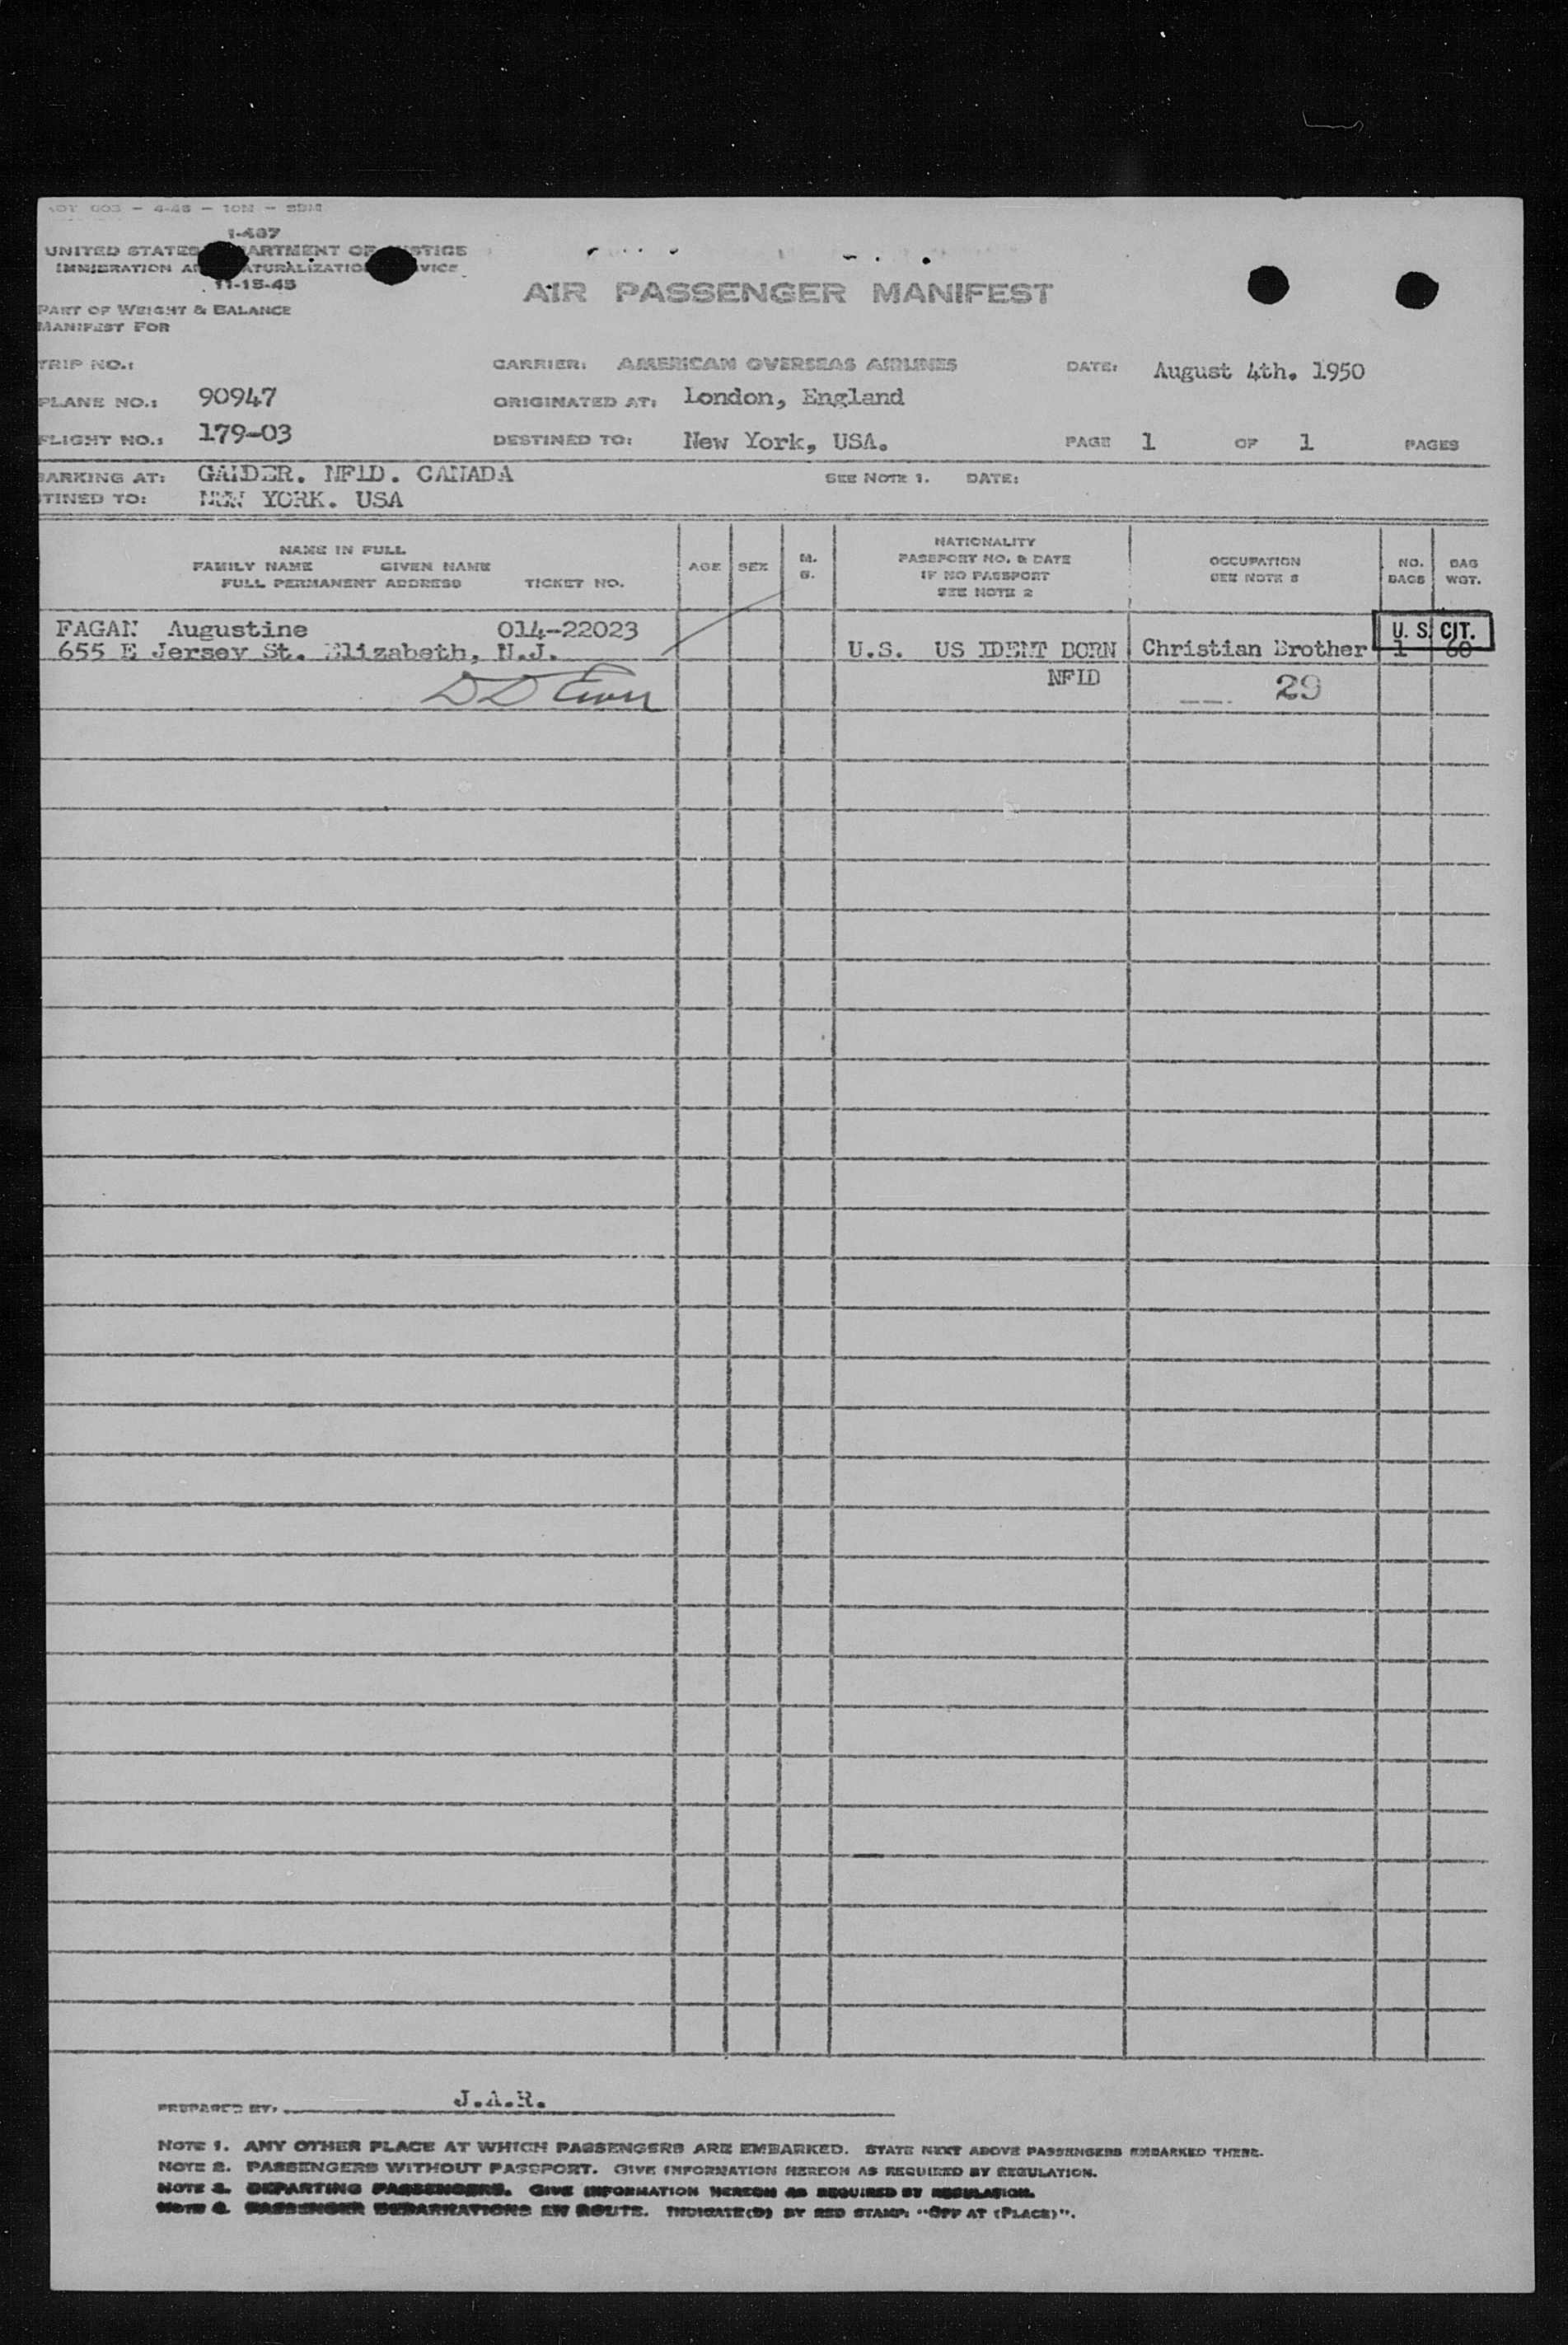 I-487
UNITED STATES DEPARTMENT OF JUSTICE
IMMIGRATION AND NATURALIZATION SERVICE
11-15-45
AIR PASSENGER MANIFEST
PART OF WEIGHT & BALANCE
MANIFEST FOR
TRIP NO.: CARRIER: AMERICAN OVERSEAS AIRLINES DATE: August 4th. 1950
PLANE NO.: 90947 ORIGINATED AT: London, England
FLIGHT NO.: 179-03 DESTINED TO: New York, USA. PAGE 1 OF 1 PAGES
BARKING AT: GANDER. NFLD. CANADA SEE NOTE 1. DATE:
TINED TO: NEW YORK. USA
NAME IN FULL
FAMILY NAME GIVEN NAME
FULL PERMANENT ADDRESS TICKET NO.
AGE SEX M. S.
NATIONALITY
PASSPORT NO. & DATE
IF NO PASSPORT
SEE NOTE 2
OCCUPATION
SEE NOTE 3
NO. BAGS
BAG WGT.
FAGAN Augustine 014-22023 U. S. CIT.
655 E Jersey St. Elizabeth, N.J. U.S. US IDENT BORN Christian Brother 1 60
NFLD 29
PREPARED BY: J.A.R.
NOTE 1. ANY OTHER PLACE AT WHICH PASSENGERS ARE EMBARKED. STATE NEXT ABOVE PASSENGERS EMBARKED THERE.
NOTE 2. PASSENGERS WITHOUT PASSPORT. GIVE INFORMATION HEREON AS REQUIRED BY REGULATION.
NOTE 3. DEPARTING PASSENGERS. GIVE INFORMATION HEREON AS REQUIRED BY REGULATION.
NOTE PASSENGER DEBARKATIONS EN ROUTE. INDICATE(D) BY RED STAMP: "OFF AT (PLACE)".